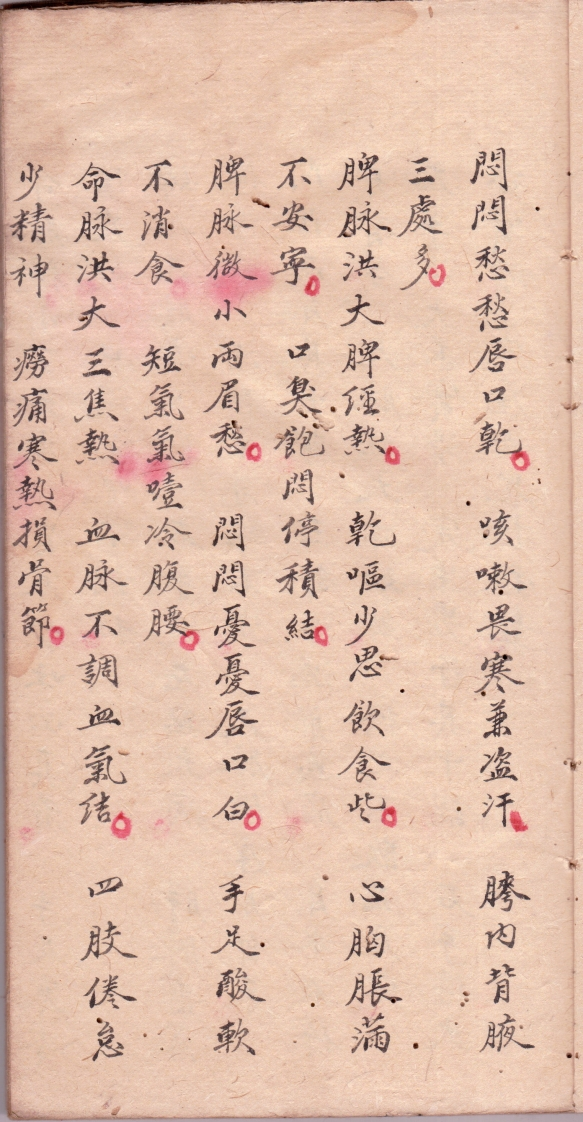 悶悶愁愁唇口乾 咳嗽畏寒兼盗汗 胯内背腋
三處多
脾脉洪大脾經熱 乾嘔少思飲食些 心胸脹滿
不安寧 口臭飽悶停積結
脾脉微小両眉愁 悶悶憂憂唇口白 手足酸軟
不消食 短氣氣噎冷腹腰
命脉洪大三焦熱 血脉不調血氣结 四肢倦怠
少精神 癆痛寒熱損骨節